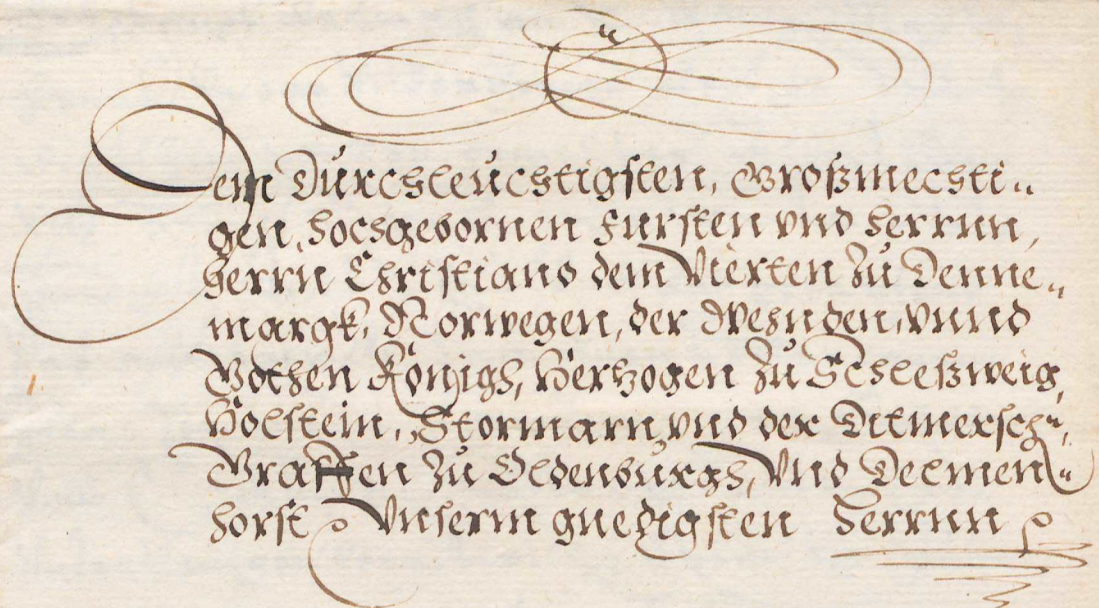 Dem Durchleuchtigsten, Großmechti„
gen, hochgebornen Fursten vnd herrnn,
herrn Christiano dem Vierten Zu Denne„
margk, Norwegen, der Wehnden, vnnd
Gothen Königh, Hertzogen Zu Schleßweig,
Holstein, Stormarn, vnd der Ditmersch„,
Graffen Zu Oldenburgh, Vnd Delmen„
horst Vnserm gnedigsten Herrnn